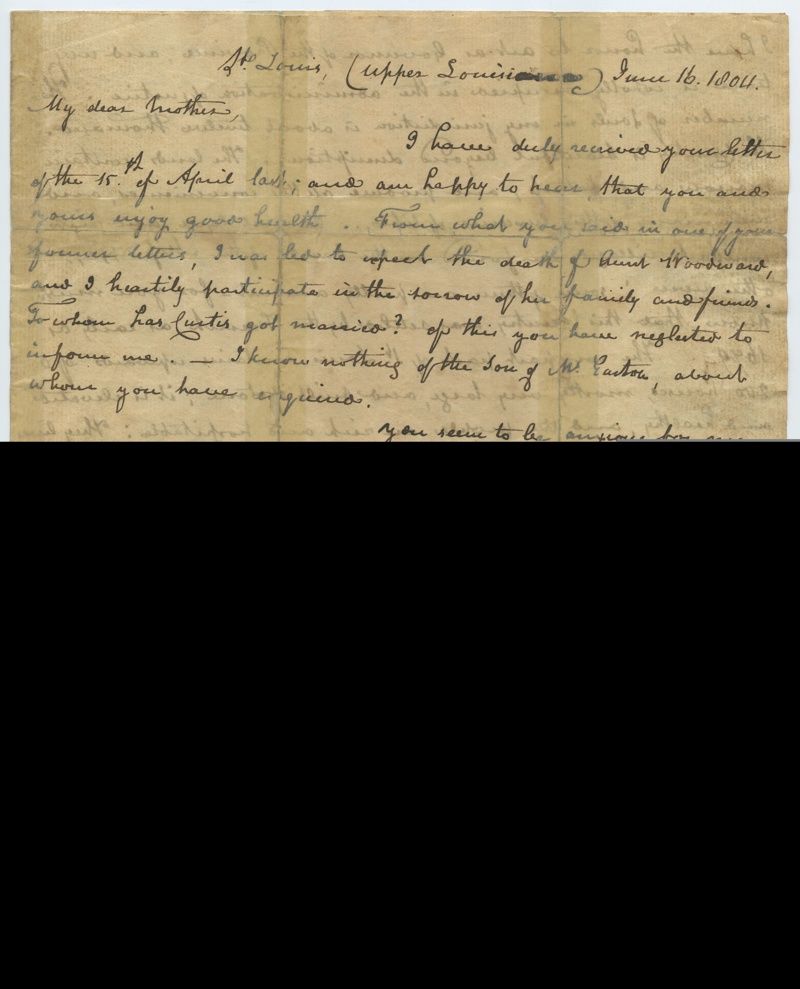 St. Louis, (Upper Louisiana) June 16. 1804.
My dear Mother,
I have duly received your letter
of the 15.th of April last; and am happy to hear that you and
yours enjoy good health. From what you said in one of your
former letters, I was led to expect the death of Aunt Woodward,
and I heartily participate in the sorrow of her family and friends.
To whom has Curtis got married? of this you have neglected to
inform me. — I know nothing of the Son of Mr. Easton, about
whom you have enquired.
You seem to be anxious for my